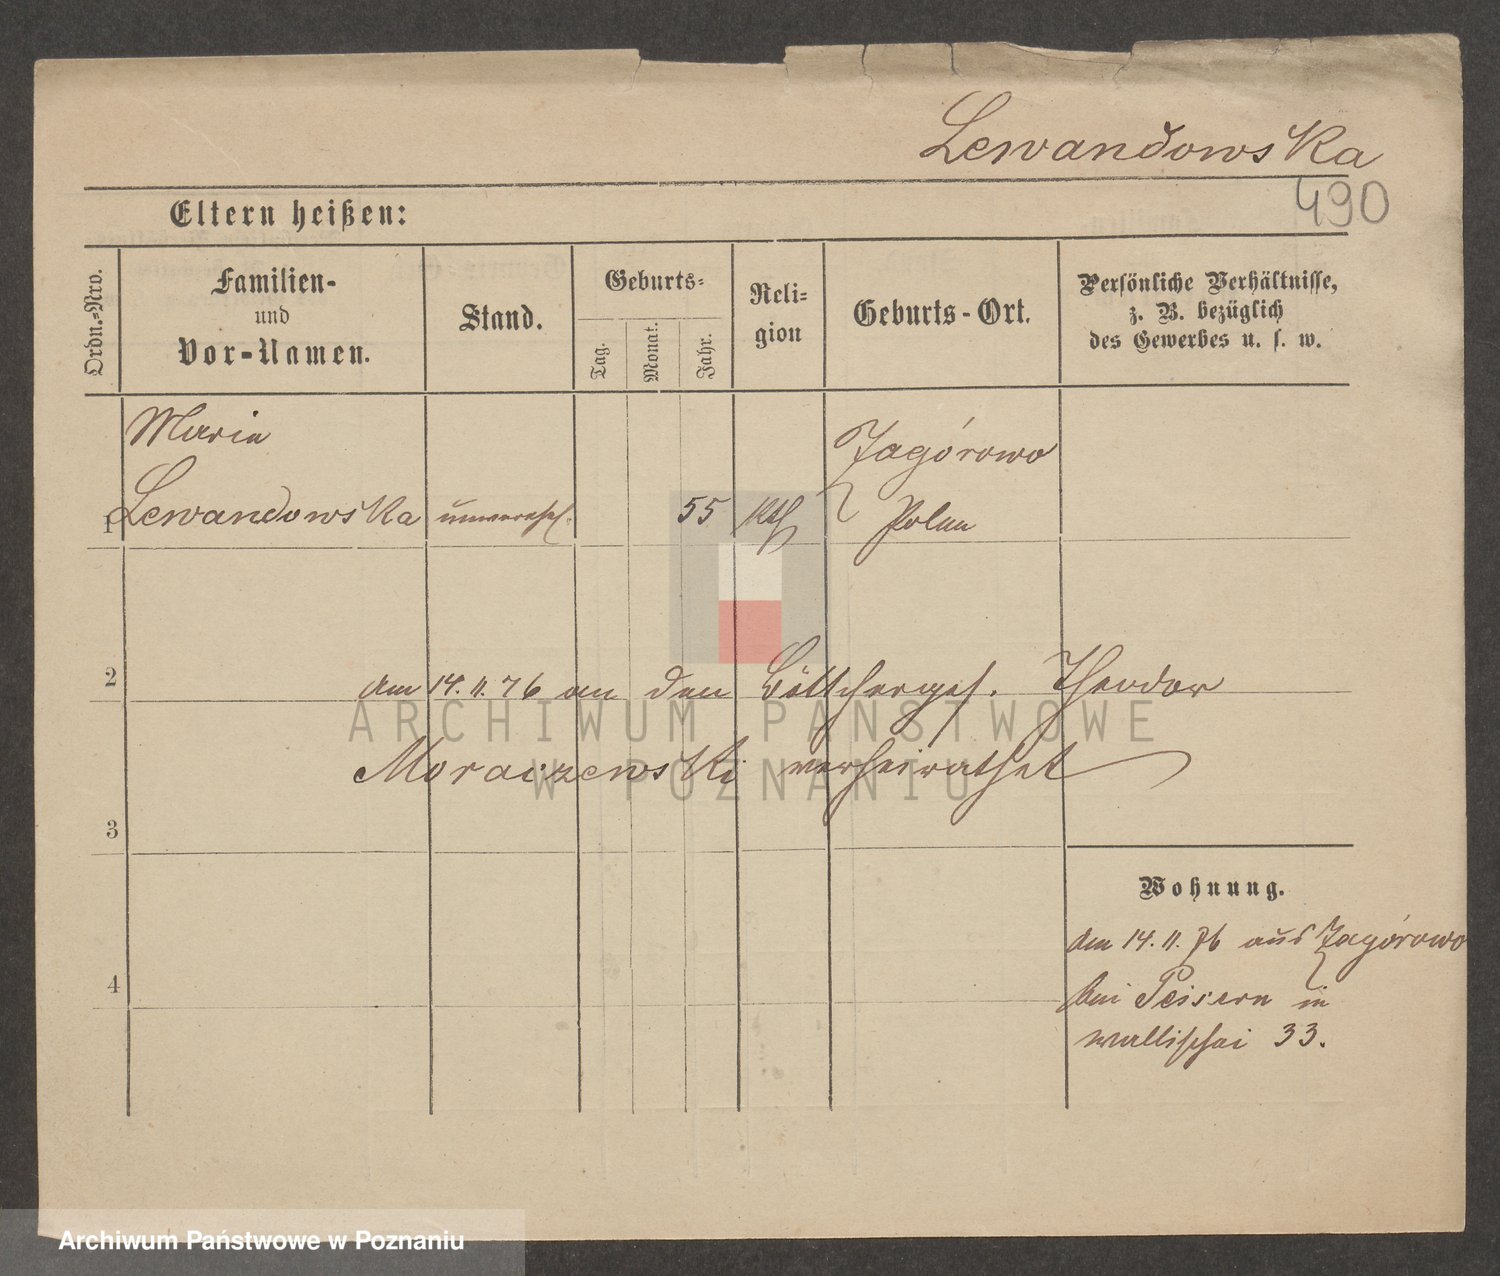 Lewandowska
490
Eltern heißen:
Ordn.-Nro.
Familien-
und
Vor-Namen.
Stand.
Geburts-
Tag.
Monat.
Jahr.
Reli-
gion
Geburts-Ort.
Persönliche Verhältnisse,
z. B. bezüglich
des Gewerbes u. s. w.
Marie
Zagórowo
1 Lewandowska unverehel. 55 kth Polen
2
am 14. 11. 76 an den Böttcherges. Theodor
Moraczewski verheirathet
3
Wohnung.
den 14. 11. 76 aus Zagórowo
bei Peisern in
Wallischei 33.
4
ARCHIWUM PAŃSTWOWE
W POZNANIU
Archiwum Państwowe w Poznaniu